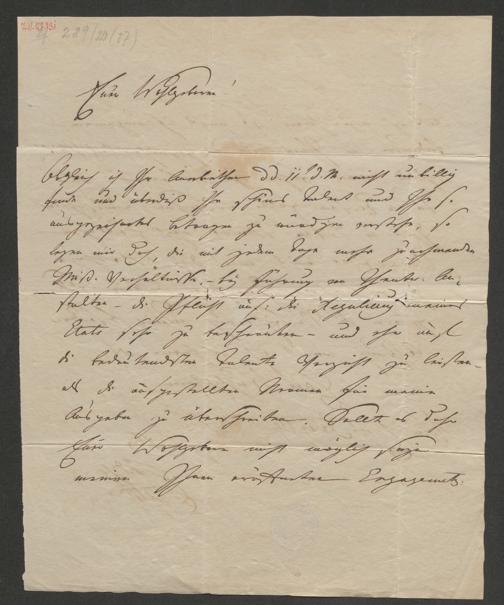 289/20/37)
Euer Wohlgeboren!
Obgleich ich Ihr Anerbiethen dd. 11t d. M. nicht unbillig
finde und überdieß Ihr schönes Talent und Ihr so
ausgezeichnetes Betragen zu würdigen verstehe, so
legen mir doch, die mit jedem Tage mehr zunehmenden
Miß-Verhältniße, – bei Führung von Theater-An-
stalten – die Pflicht auf: die Regulirung meines
Etats sehr zu beschränken – und eher auf
die bedeutendsten Talente Verzicht zu leisten –
als die ausgestellten Normen für meine
Ausgaben zu überschreiten. Sollte es daher
Euer Wohlgeboren nicht möglich seyn
meinen Ihnen eröffneten Engagements-